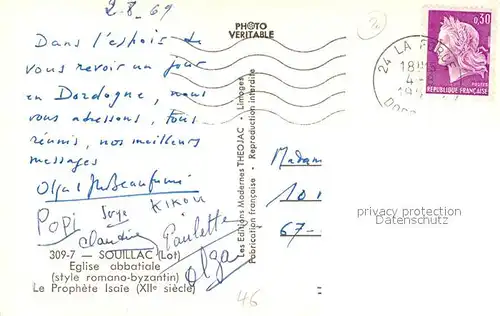 2.8_69
Dans l'espoir de
vous revoir un jour
en Dordogne, nous
vous adressons, tous
réunis, nos meilleurs
messages
Olga
Popi Kikou
Claudine Paulette
Olga
309-7 — SOUILLAC (Lot)
Eglise abbatiale
(style romano-byzantin)
Le Prophète Isaïe (XIIe siècle)
46
PHOTO
VERITABLE
Les Editions Modernes THEOJAC - Limoges
Fabrication française - Reproduction interdite
24 LA
18H
4-8
19
DOR
0,30
POSTES
REPUBLIQUE FRANÇAISE
Madam
10
67-
privacy protection
Datenschutz